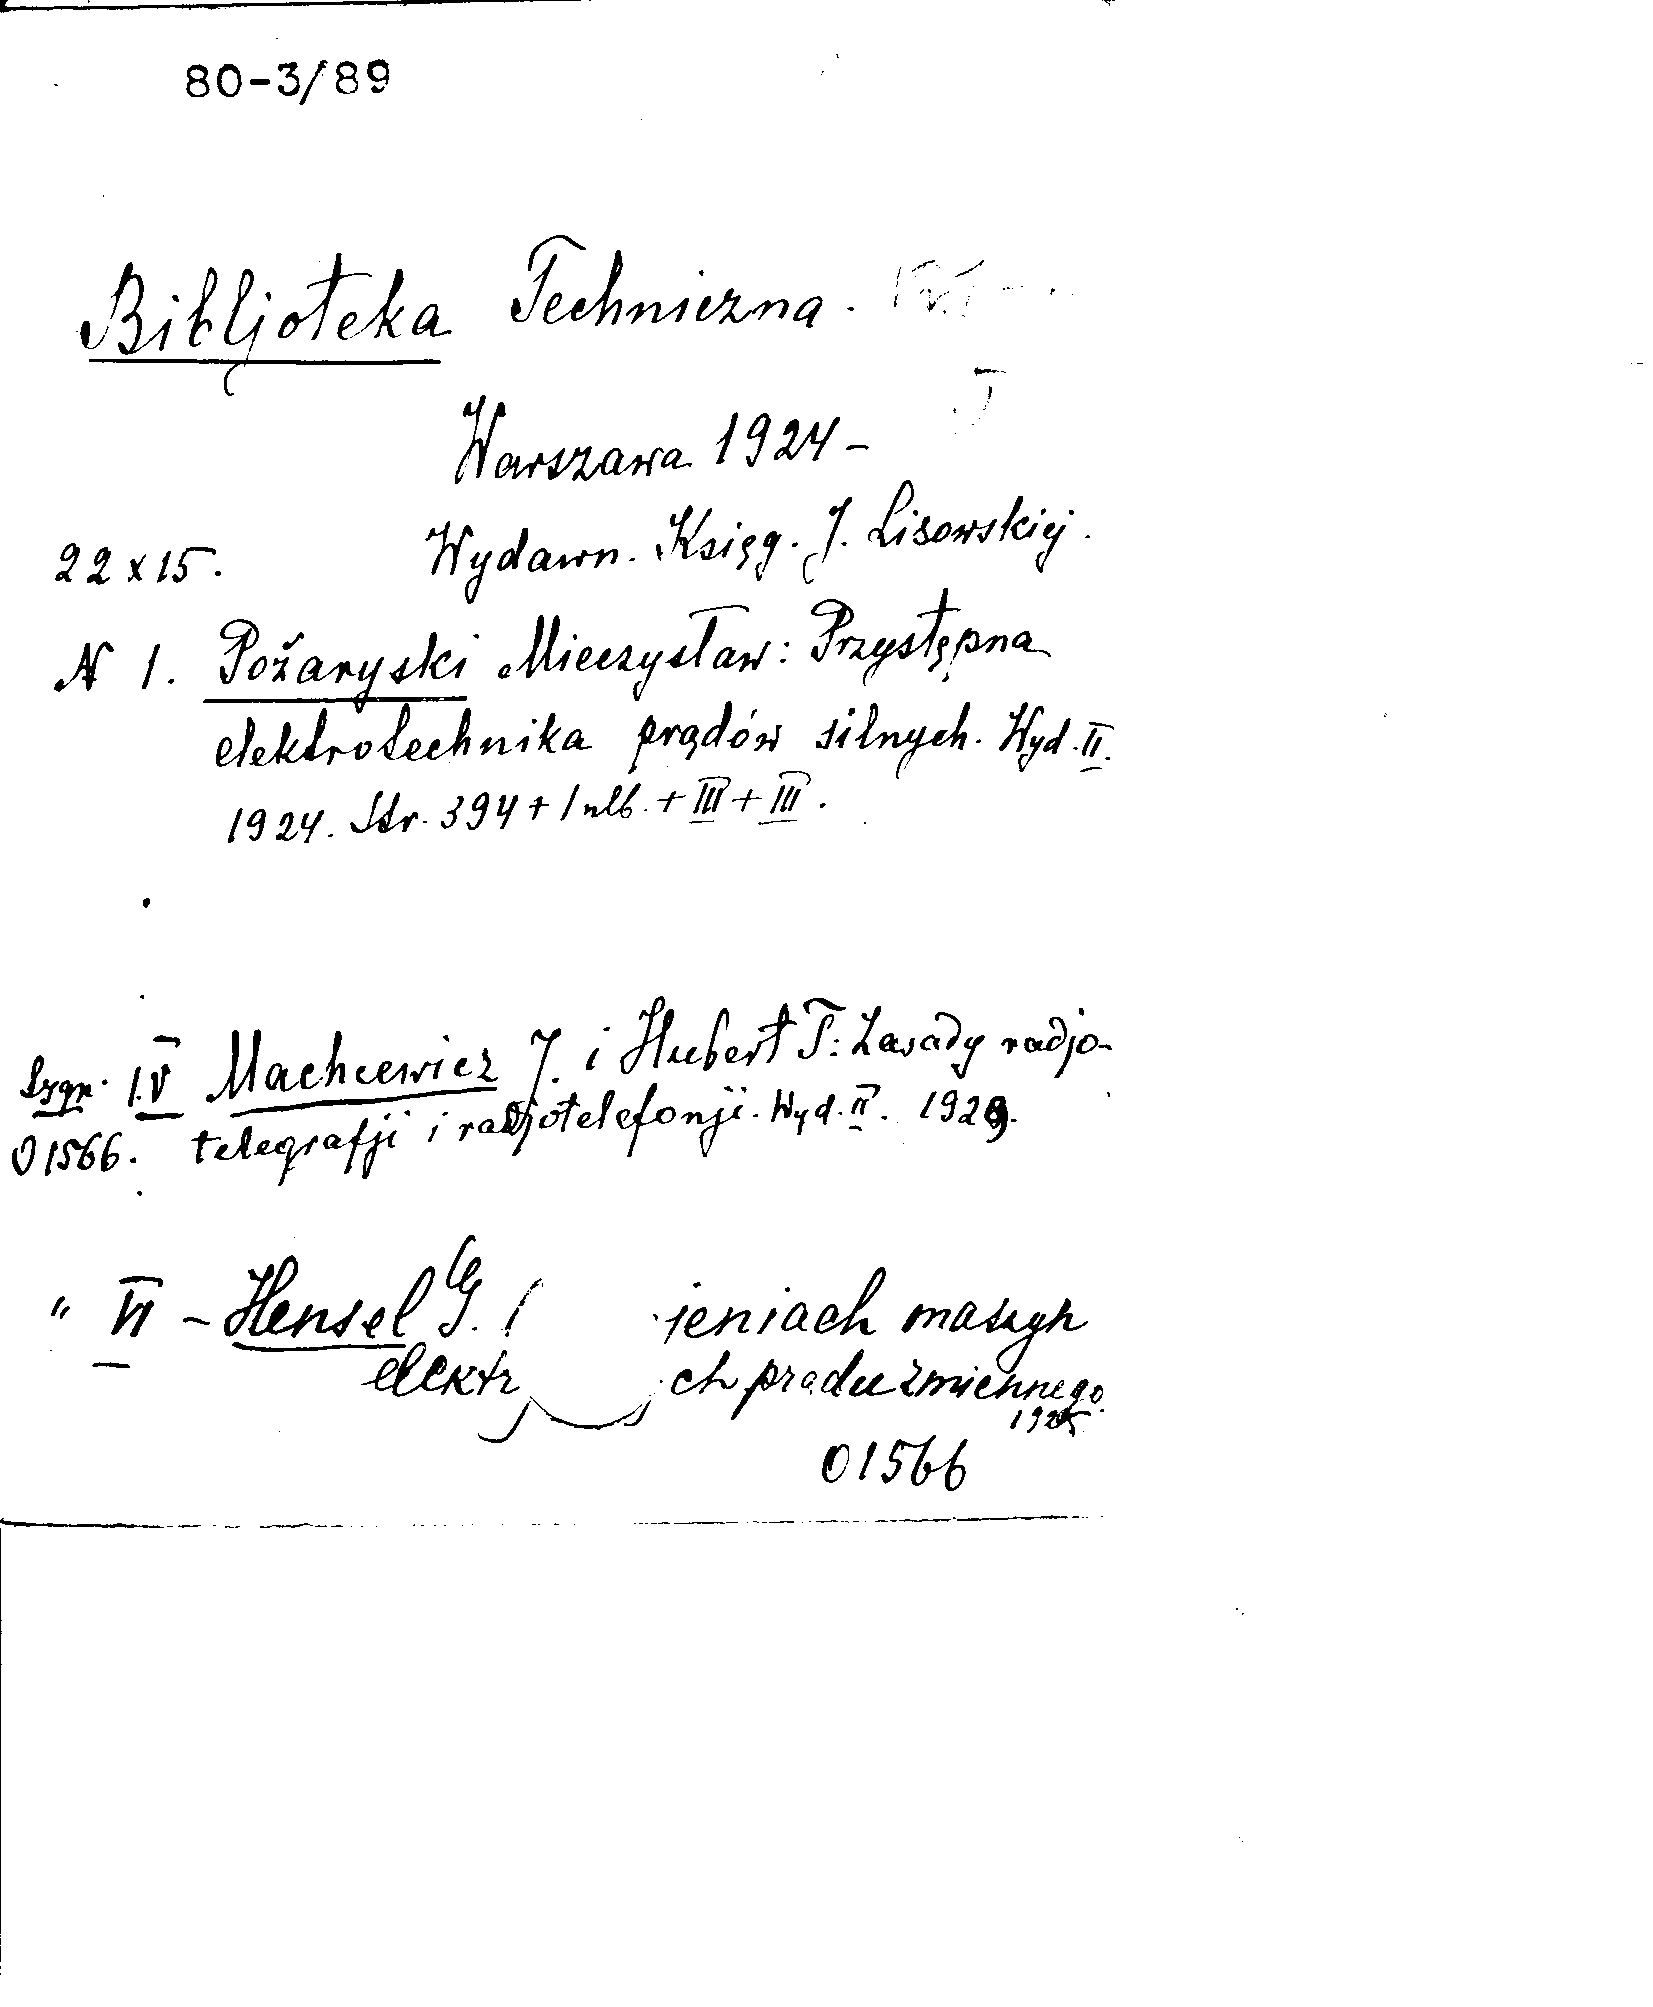 80-3/89
Bibljoteka Techniczna.
Warszawa 1924-
22 x 15. Wydawn. Księg. J. Lisowskiej.
N 1. Pożaryski Mieczysław: Przystępna
elektrotechnika prądów silnych. Wyd. II.
1924. Str. 394 + 1 nlb. + III + III.
Sygn. I.V Machcewicz J. i Hubert T: Zasady radjo-
01566. telegrafji i radjotelefonji. Wyd. II. 1929.
" VI - Hensel G. jeniach maszyn
elektr ch prądu zmiennego.
1925
01566